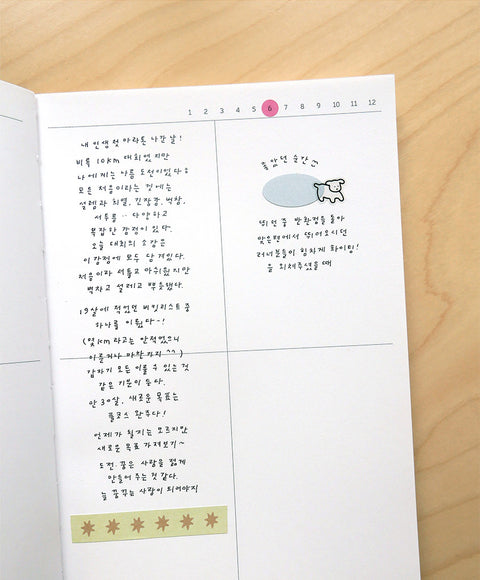 1 2 3 4 5 6 7 8 9 10 11 12
내 인생 첫 마라톤 나간 날!
비록 10km 대회였지만
나에게는 나름 도전이었다?
모든 처음이라는 것에는
설렘과 희열, 긴장감, 벅참,
서투름… 다양하고
복잡한 감정이 있다.
오늘 대회의 소감은
이 감정에 모두 담겨있다.
처음이라 서툴고 아쉬웠지만
벅차고 설레고 뿌듯했다.
19살에 적었던 버킷리스트 중
하나를 이뤘다~!
(몇 km 라고는 안적었으니
이룬거나 마찬가지 ^^)
갑자기 모든 이룰 수 있는 것
같은 기분이 든다.
만 30살, 새로운 목표는
풀코스 완주다!
언제가 될지는 모르지만,
새로운 목표 가져보기~
도전, 꿈은 사람을 젊게
만들어 주는 것 같다.
늘 꿈꾸는 사람이 되어야지
좋았던 순간
뛰던 중 반환점을 돌아
맞은편에서 뛰어오시던
러너분들이 힘차게 화이팅!
을 외쳐주셨을 때